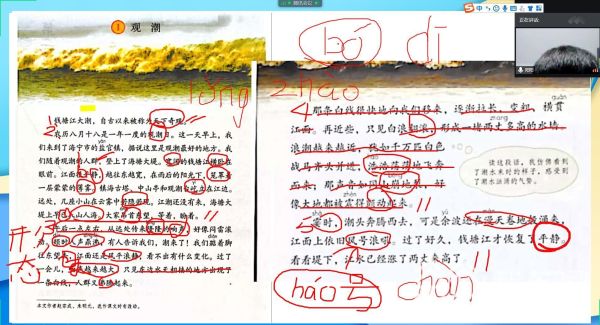 腾讯会议
正在讲话:
1 观 潮
钱塘江大潮，自古以来被称为天下奇观。
农历八月十八是一年一度的观潮日。这一天早上，我
们来到了海宁市的盐官镇，据说这里是观潮最好的地方。我
们随着观潮的人群，登上了海塘大堤。宽阔的钱塘江横卧在
眼前。江面很平静，越往东越宽，在雨后的阳光下，笼罩着
一层蒙蒙的薄雾。镇海古塔、中山亭和观潮台屹立在江边。
远处，几座小山在云雾中若隐若现。江潮还没有来，海塘大
堤上早已人山人海。大家昂首东望，等着，盼着。
午后一点左右，从远处传来隆隆的响声，好像闷雷滚
动。顿时人声鼎沸，有人告诉我们，潮来了！我们踮着脚
往东望去，江面还是风平浪静，看不出有什么变化。过了
一会儿，响声越来越大，只见东边水天相接的地方出现了
一条白线，人群又沸腾起来。
本文作者赵宗成、朱明元，选作课文时有改动。
bó dī
zhāo
那条白线很快地向我们移来，逐渐拉长，变粗，横贯
江面。再近些，只见白浪翻滚，形成一堵两丈多高的水墙。
浪潮越来越近，犹如千万匹白色
战马齐头并进，浩浩荡荡地飞奔
而来；那声音如同山崩地裂，好
像大地都被震得颤动起来。
霎时，潮头奔腾西去，可是余波还在漫天卷地般涌来，
江面上依旧风号浪吼。过了好久，钱塘江才恢复了平静。
看看堤下，江水已经涨了两丈来高了。
读这段话，我仿佛看到
了潮水来时的样子，感受到
了潮水汹涌的气势。
háo号 chàn